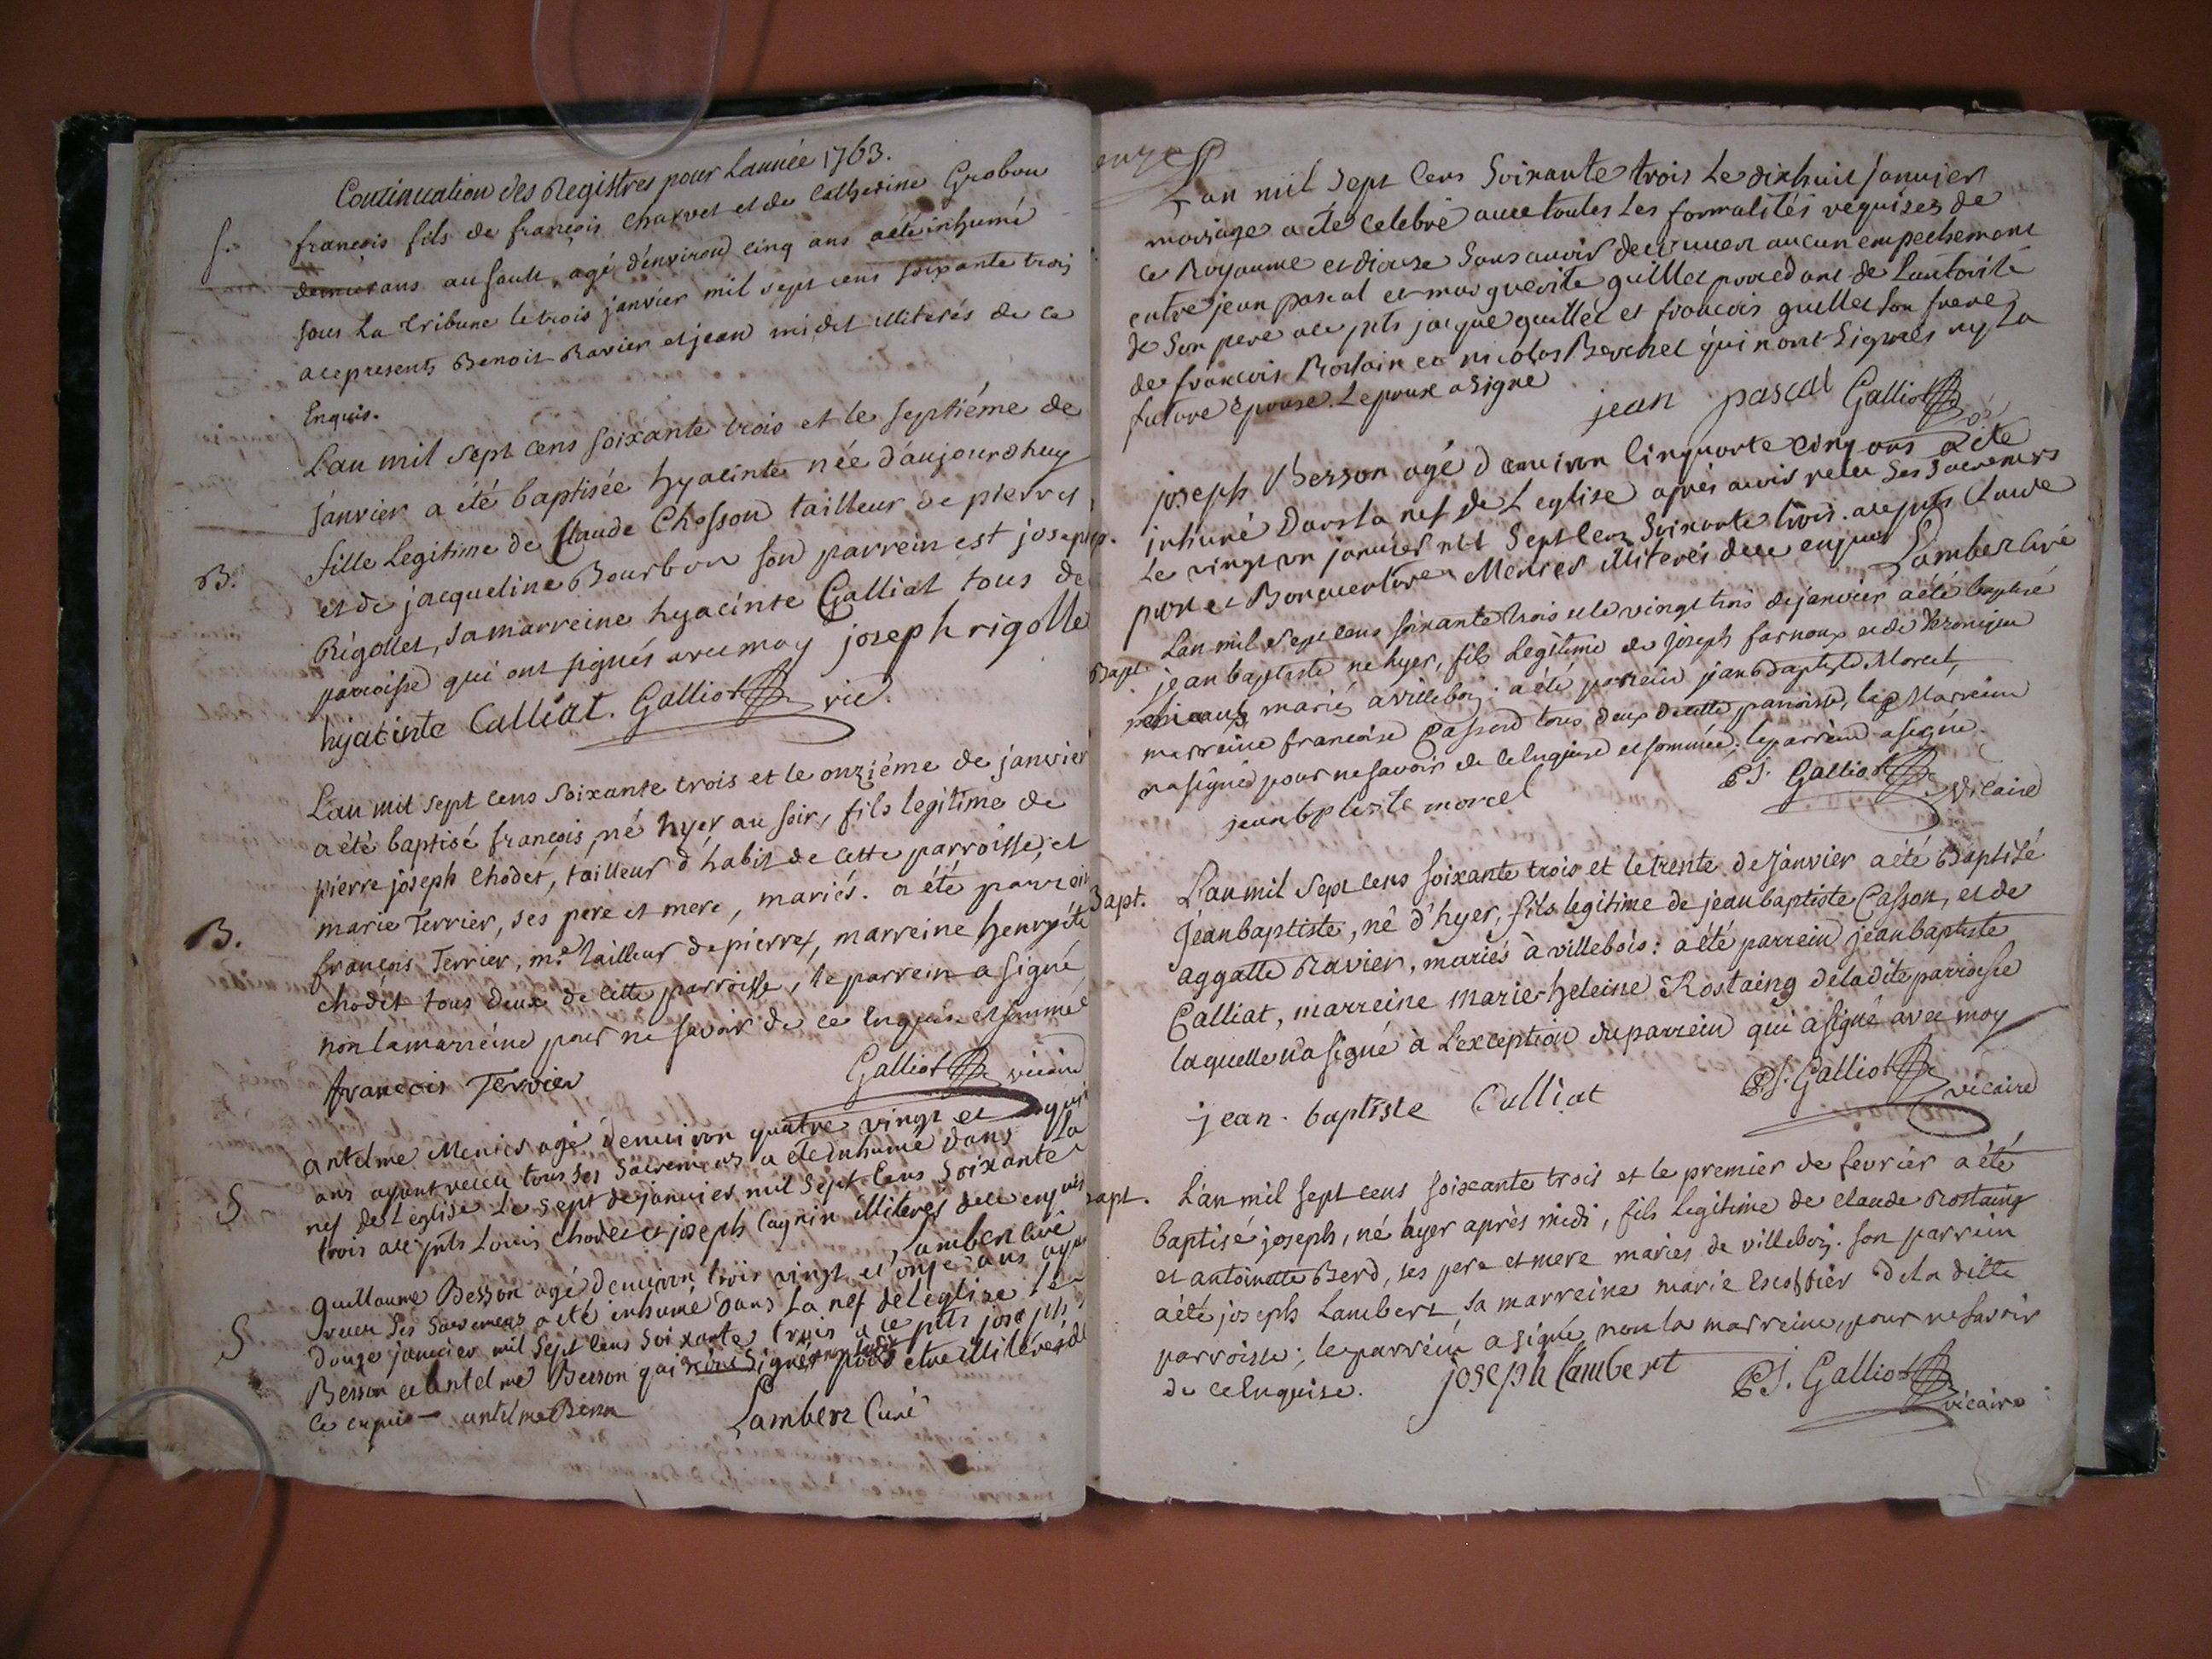 Continuation des Registres pour Lannée 1763.
S. françois fils de françois Charvet et de Catherine Grobon
ans au sault, agé denviron cinq ans a été inhumé
sous La tribune le trois janvier mil sept cens soixante trois
a ce presents Benoit Ravier et jean midet illiterés de ce
Enquis.
L'an mil sept cens soixante trois et le septiéme de
janvier a été baptisée hyacinte née d'aujourdhuy
B. fille Legitime de Claude Chosson tailleur de pierres
et de jacqueline Bourbon son parrein est joseph
Rigollet, sa marreine hyacinte Galliat tous de
paroisse qui ont signés avec moy joseph rigolle
hyacinte Calliat. Galliot vic.
L'an mil sept cens soixante trois et le onziéme de janvier
a été baptisé françois, né hyer au soir, fils legitime de
pierre joseph Chodet, tailleur d'habit de cette parroisse, et
marie Terrier, ses pere et mere, mariés. a été parrein
B. françois Terrier, me tailleur de pierres, marreine henryéte
chodet tous deux de cette parroisse, le parrein a signé
non la marreine pour ne savoir de ce enquise et sommé
francois Terrier Galliot vicaire
antelme Menier agé denuiron quatre vingt et
ans ayant receu tous ses sacremens a été inhumé dans la
S nef de Leglise Le sept de januier mil sept Cens soixante
trois a ce pnts Louis chodet et joseph Cagnin illiteres de ce enquis
Lambert curé
guillaume Besson agé denuiron trois vingt et onze ans aya
receu ses sacremens a été inhumé dans la nef de leglise le
S douze januier mil sept Cens soixante trois a ce pnts joseph
Besson et antelme Besson qui signés pour etre illiterés de
ce enquis antelme Besson Lambert Curé
L'an mil sept Cens soixante trois Le dixhuit januier
mariage a été celebré auec toutes Les formalités requises de
ce Royaume et diocese sans auoir decouuert aucun empechement
entre jean pascal et marguerite guillet procedant de Lautorité
de son pere a ce pnts jacque guillet et francois guillet son frere
de francois Rostain et nicolas Berchet qui n'ont signés ny La
future epouse. Lepoux a signé jean pascal Galliot
joseph Besson agé d'enuiron Cinquante cinq ans a été
inhumé Dans la nef de Leglise aprés auoir receu ses sacremens
Le vingt un januier mil sept Cens soixante trois. a ce pnts Claude
et Bonauenture Menier illiterés de ce enquis Lambert curé
Bapt. Lan mil sept cens soixante trois et le vingt trois de janvier a été baptisé
jean baptiste né hyer, fils Legitime de joseph farnoux et de Veronique
mariés a villebois: a été parrein jean Baptiste Morcel,
marreine francoise Passerd tous deux de cette parroisse, la Marreine
na signé pour ne savoir de ce enquise et sommée; le parrein a signé.
jean bptiste morcel PJ. Galliot Vicaire
Bapt. L'an mil sept cens soixante trois et le trente de janvier a été Baptisé
jean baptiste, né d'hyer, fils legitime de jean baptiste Casson, et de
aggatte Ravier, mariés à villebois: a été parrein jean baptiste
Calliat, marreine marie-heleine Rostaing de ladite parroisse
laquelle n'a signé à L'exception du parrein qui a signé avec moy
jean-baptiste Calliat PJ. Galliot vicaire
Bapt. L'an mil sept cens soixante trois et le premier de fevrier a été
baptisé joseph, né hyer après midi, fils legitime de claude Rostaing
et antoinette Berd, ses pere et mere mariés de villebois. son parrein
a été joseph Lambert, sa marreine marie Escoffier de la ditte
parroisse; le parrein a signé, non la marreine, pour ne savoir
de ce enquise. joseph lambert PJ. Galliot vicaire